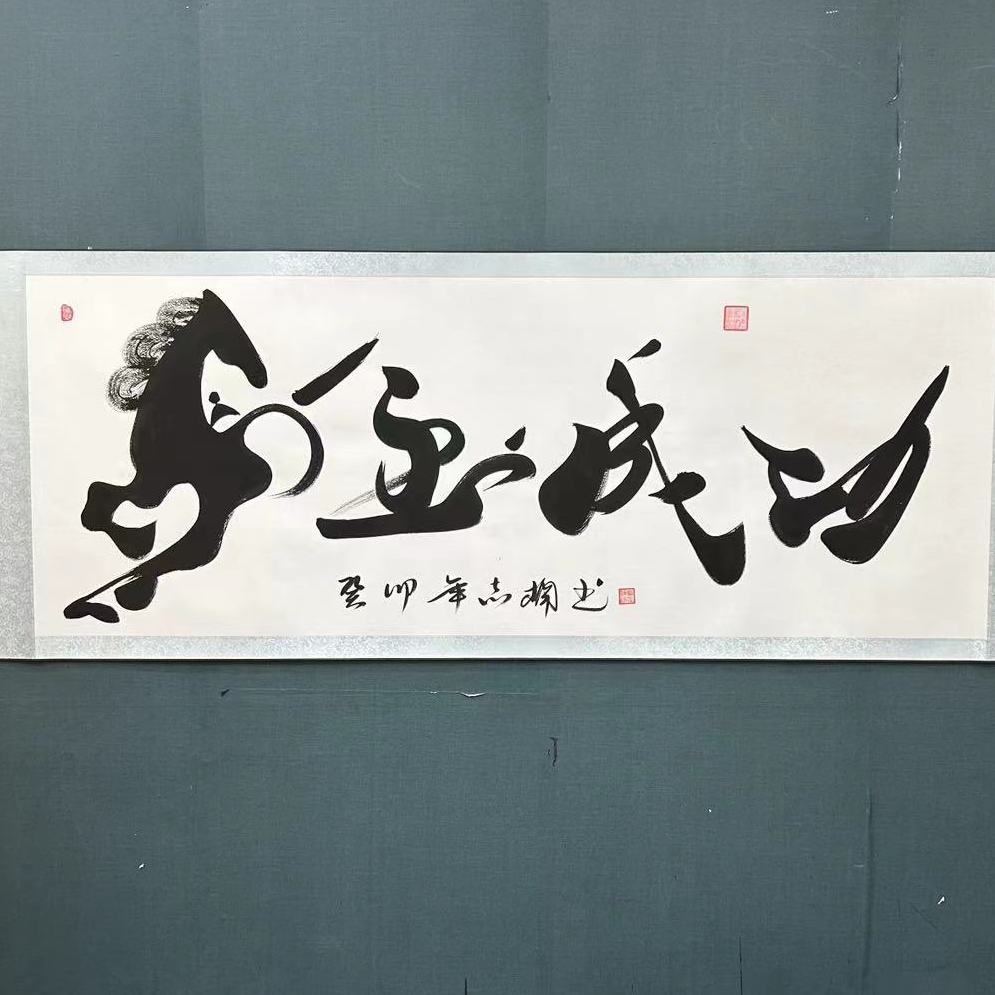 马到成功
癸卯年志书